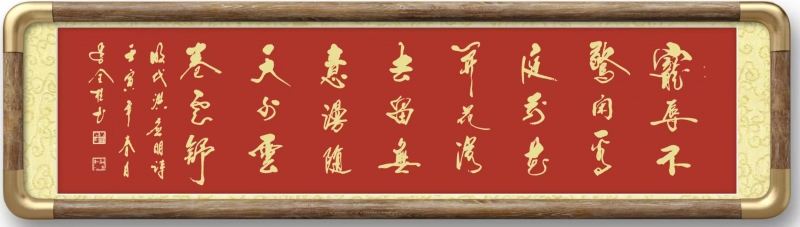 寵辱不
驚閑看
庭前花
開花落
去留無
意漫隨
天外雲
卷雲舒
明代洪应明詩
壬寅年春月